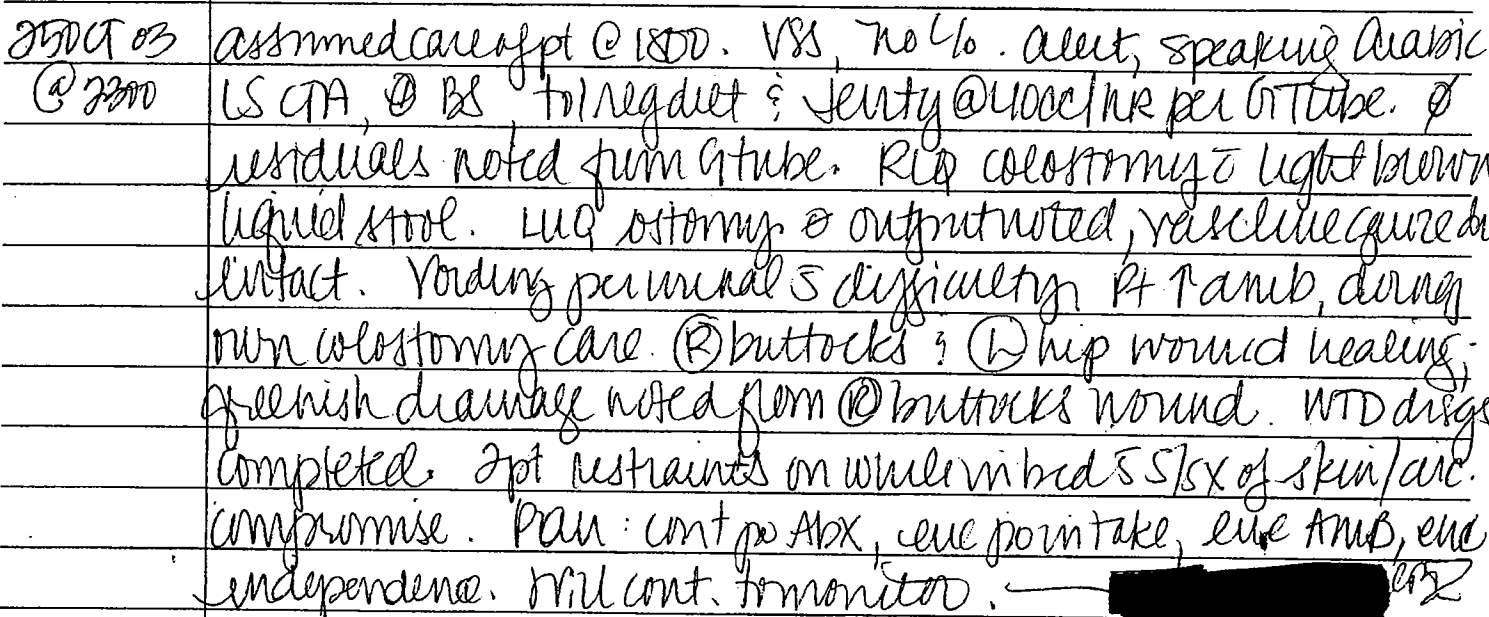 25 OCT 03 assumed care of pt @ 1800. VSS, no c/o. alert, speaking Arabic
@ 2300 LS CTA, ⊕ BS, tol reg diet & Jevity @ 40cc/hr per GTube. ø
residuals noted from Gtube. RLQ colostomy c̄ light brown
liquid stool. LUQ ostomy ø output noted, vaseline gauze
intact. Voiding per urinal s̄ difficulty. Pt ↑ amb, doing
own colostomy care. Ⓡ buttocks & Ⓛ hip wound healing;
greenish drainage noted from Ⓡ buttocks wound. WTD drsgs
completed. 2pt restraints on while in bed s̄ s/sx of skin/circ.
compromise. Plan: cont po Abx, enc po intake, enc AMB, enc
independence. Will cont. to monitor.